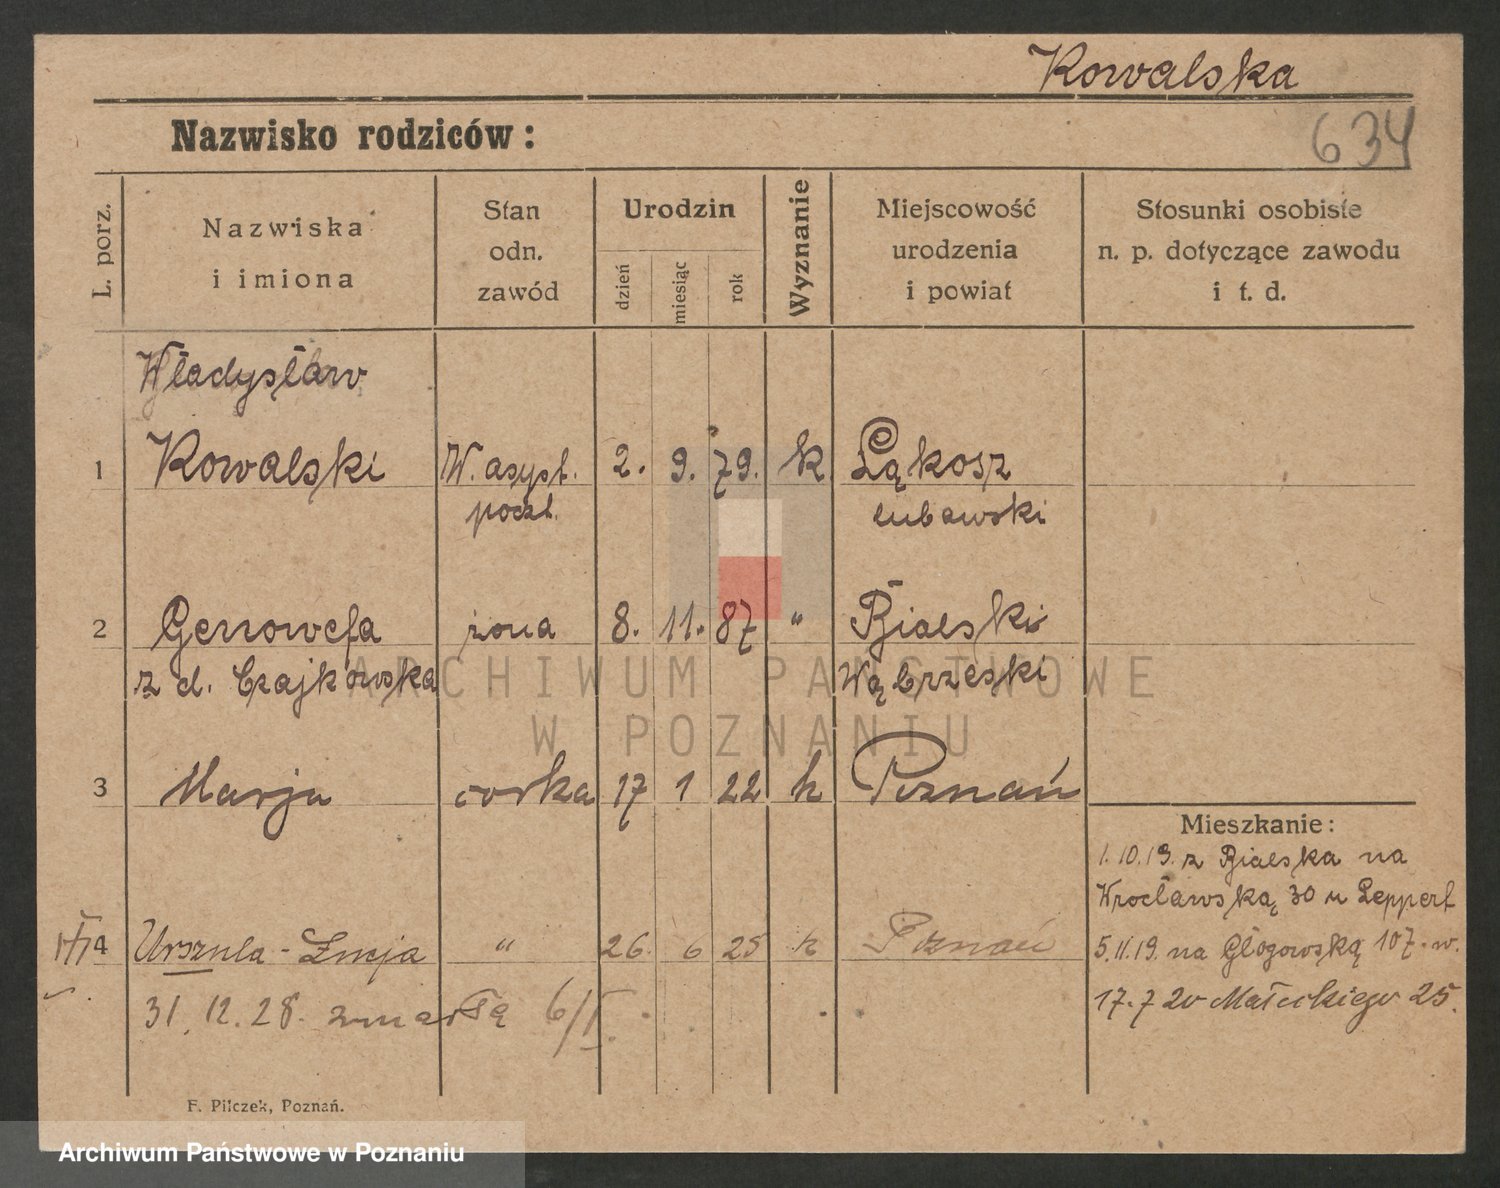 Kowalska
Nazwisko rodziców:
634
L. porz.
Nazwiska
i imiona
Stan
odn.
zawód
Urodzin
dzień
miesiąc
rok
Wyznanie
Miejscowość
urodzenia
i powiat
Stosunki osobiste
n. p. dotyczące zawodu
i t. d.
Władysław
1 Kowalski W. asyst. 2. 9. 79. k Łąkosz
poczt. lubawski
2 Genowefa żona 8. 11. 87 " Bialski
z d. Czajkowska Wąbrzeski
3 Marja corka 17 1 22 k Poznań
Mieszkanie:
1.10.19. z Bialska na
Wrocławską 30 u Leppert
4 Urszula - Łucja " 26. 6 25 k Poznań
5.11.19. na Głogowską 107. w.
31. 12. 28. zmarła 6/I.
17.7 20 Małeckiego 25.
F. Pilczek, Poznań.
ARCHIWUM PAŃSTWOWE
W POZNANIU
Archiwum Państwowe w Poznaniu